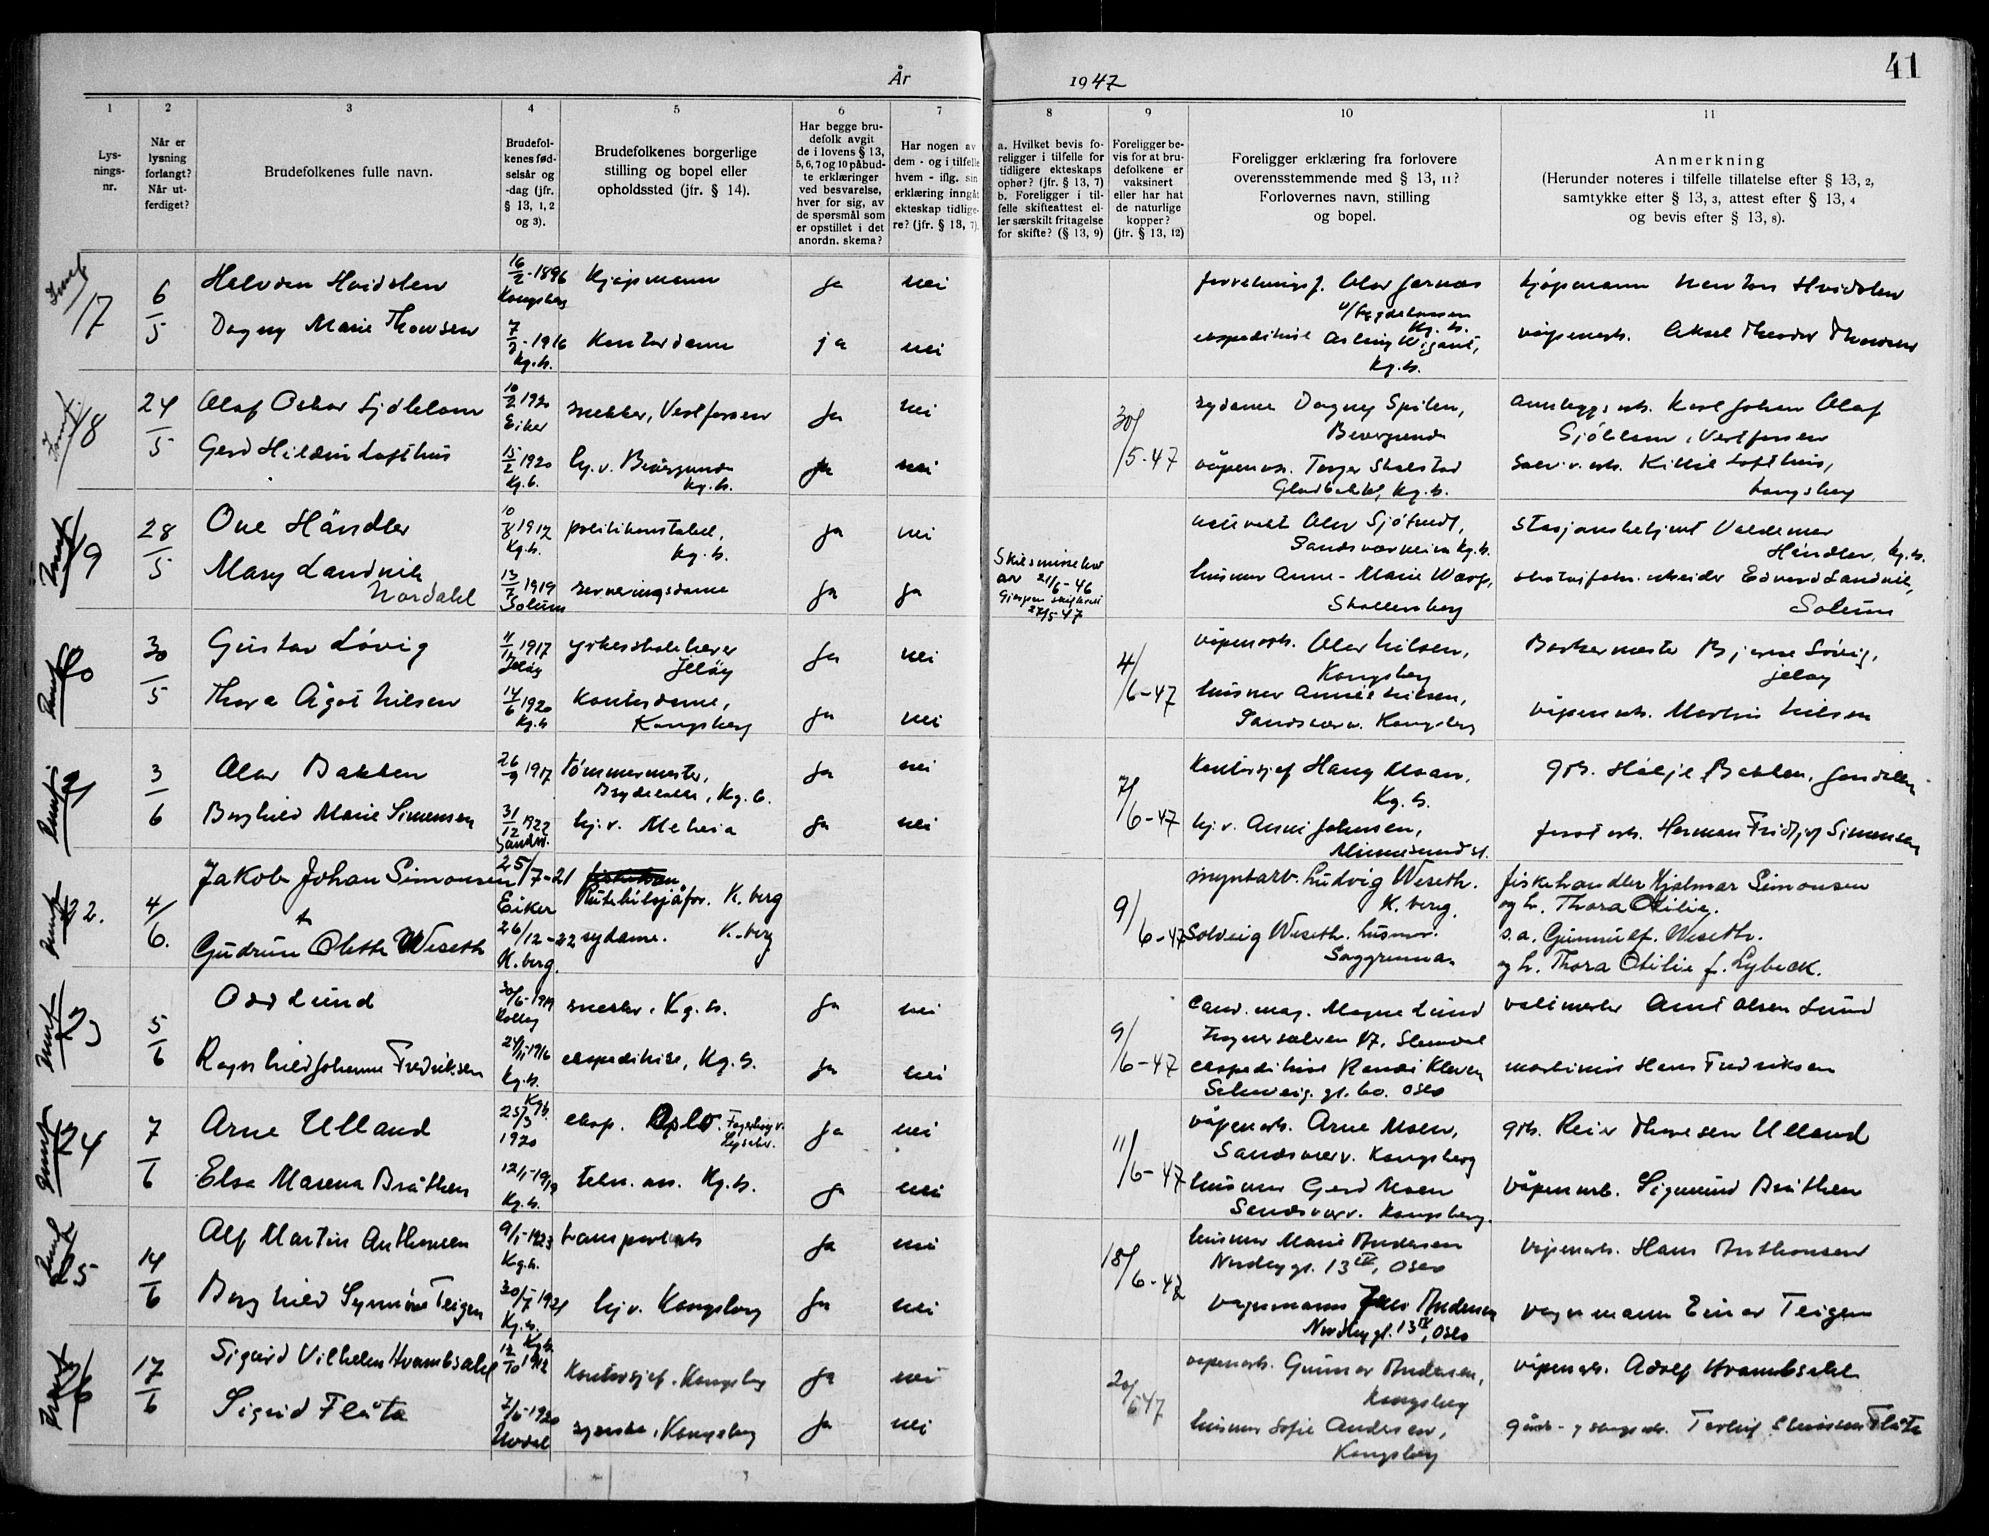 År 1947
41
1
2
3
4
5
6
7
8
9
10
11
Lys-
nings-
nr.
Når er
lysning
forlangt?
Når ut-
ferdiget?
Brudefolkenes fulle navn.
Brudefol-
kenes fød-
selsår og
-dag (jfr.
§ 13, 1, 2
og 3).
Brudefolkenes borgerlige
stilling og bopel eller
opholdssted (jfr. § 14).
Har begge bru-
defolk avgit
de i lovens § 13,
5, 6, 7 og 10 påbud-
te erklæringer
ved besvarelse,
hver for sig, av
de spørsmål som
er opstillet i det
anordn. skema?
Har nogen av
dem - og i tilfelle
hvem - iflg. sin
erklæring inngåt
ekteskap tidlige-
re? (jfr. § 13, 7).
a. Hvilket bevis fo-
religger i tilfelle for
tidligere ekteskaps
ophør? (jfr. § 13, 7)
b. Foreligger i til-
felle skifteattest el-
ler særskilt fritagelse
for skifte? (§ 13, 9)
Foreligger be-
vis for at bru-
defolkene er
vaksinert
eller har hat
de naturlige
kopper?
(jfr. § 13, 12)
Foreligger erklæring fra forlovere
overensstemmende med § 13, 11?
Forlovernes navn, stilling
og bopel.
Anmerkning
(Herunder noteres i tilfelle tillatelse efter § 13, 2,
samtykke efter § 13, 3, attest efter § 13, 4
og bevis efter § 13, 8).
17
6/5
Halvdan Hvidsten
16/2-1896
Kongsberg
Kjøpmann
Ja
nei
kjøpmann Newton Hvidsten
Dagny Marie Thowsen
1916
Kg.b.
Kontordame
ja
nei
Kg.b.
våpenarb. Aksel Theodor Thowsen
18
24/5
Olaf Oskar Sjøblom
10/2 1920
Eiker
snekker, Vestfossen
Ja
nei
30/5-47
sydame Dagny Spiten,
Bevergrenda
Karl Johan Olaf
Sjöblom, Vestfossen
Gerd Hildur Lofthus
15/2 1920
Kg.b.
hj.v. Bevergrenda
Kg.b.
Ja
nei
våpenarb. Torger Skalstad
Kg.b.
Kittil Lofthus,
Kongsberg
19
28/5
Ove Händler
10/8 1917
Kg.b.
politikonstabel,
Kg.b.
Ja
nei
Sandsværveien Kg.b.
stasjonsbetjent Valdemar
Händler, Kg.b.
Mary Landvik
Nordahl
13/7 1919
Solum
serveringsdame
Ja
Ja
av 21/6-46
27/5-47
husmor Anne-Marie Waarp,
Skollenborg
Edvard Landvik,
Solum
20
30/5
Gustav Løvig
11/12 1917
Jeløy
yrkesskolelærer
Jeløy
Ja
nei
4/6-47
våpenarb. Olav Nilsen,
Kongsberg
Bjarne Løvig,
Jeløy
Thora Ågot Nilsen
14/6 1920
Kg.b
kontordame,
Kongsberg
Ja
nei
husmor Annie Nilsen,
Sandsværv. Kongsberg
våpenarb. Martin Nilsen
21
3/6
Olav Bakken
26/9 1917
tømmermester,
Kg.b.
Ja
nei
7/6-47
kontorsjef Harry Moan,
Kg.b.
Borghild Marie Simensen
31/12 1922
Sandsv.
hj.v. Meheia
Ja
nei
hj.v. Anni Johnsen,
Herman Fridtjof Simensen
22.
4/6.
Jakob Johan Simonsen
25/7-21
Eiker
Rutebilsjåfør. K.berg
9/6-47
myntarb. Ludvig Weseth.
K.berg.
fiskehandler Hjalmar Simonsen
og h. Thora Otilie.
Gudrun Olette Weseth
26/12-22
K.berg.
sydame. K.berg
Solveig Weseth. husmor.
Saggrenna.
s.a. Gunnulf. Weseth.
og h. Thora Otilie f. Lybeck.
23
5/6
Odd Lund
30/6-1919
snekker, Kg.b.
Ja
nei
9/6-47
cand. mag. Magne Lund
Arnt Olsen Lund
Ragnhild Johanne Fredriksen
Kg.b.
ekspeditrise, Kg.b.
Ja
nei
ekspeditrise Randi Kleven
Oslo
maskinist Hans Fredriksen
24
7/6
Arne Ulland
Kgb.
25/3
1920
eksp. Oslo.
Ja
nei
11/6-47
våpenarb. Arne Moen,
Sandsværv. Kongsberg
gbr. Reier Thoresen Ulland
Elsa Marena Bråthen
12/1-1919
Kg.b.
teln. ass. Kg.b.
Ja
nei
husmor Gerd Moen
Sandsværv. Kongsberg.
våpenarb. Sigmund Bråthen
25
14/6
Alf Martin Anthonsen
9/1-1923
Kg.b.
transportarb
Ja
nei
18/6-47
husmor Marie Andersen
Nordbygt. 13 IV, Oslo
våpenarb. Hans Anthonsen
Borghild Synnöve Teigen
30/7-1921
Kg.b.
hj.v. Kongsberg
Ja
nei
vognmann Jens Andersen
Nordbygt. 13 IV, Oslo
vognmann Einar Teigen
26
17/6
Sigurd Vilhelm Hvambsahl
Kgb.
12/10 1912
Kontorsjef, Kongsberg
Ja
nei
20/6 47
våpenarb. Gunnar Andersen,
Kongsberg
våpenarb. Adolf Hvambsahl
Sigrid Flåta
7/6-1920
Uvdal
syerske, Kongsberg
Ja
nei
husmor Sofie Andersen,
Kongsberg
Flåta